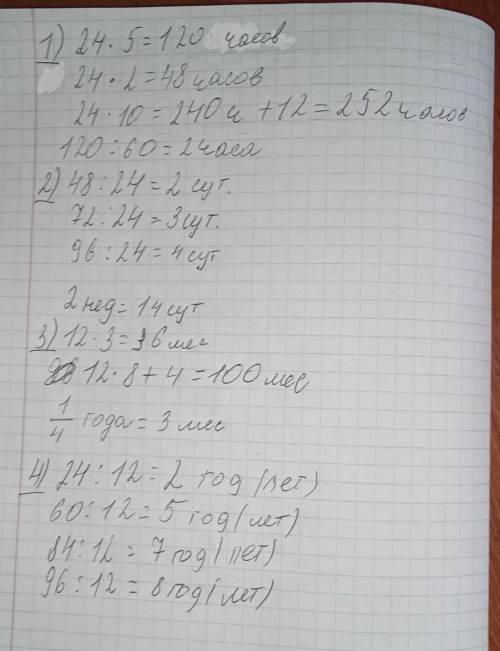 1) 24 · 5 = 120 часов
24 · 2 = 48 часов
24 · 10 = 240 ч + 12 = 252 часов
120 : 60 = 2 часа
2) 48 : 24 = 2 сут.
72 : 24 = 3 сут.
96 : 24 = 4 сут
2 нед = 14 сут
3) 12 · 3 = 36 мес
12 · 8 + 4 = 100 мес
1/4 года = 3 мес
4) 24 : 12 = 2 год (лет)
60 : 12 = 5 год (лет)
84 : 12 = 7 год (лет)
96 : 12 = 8 год (лет)